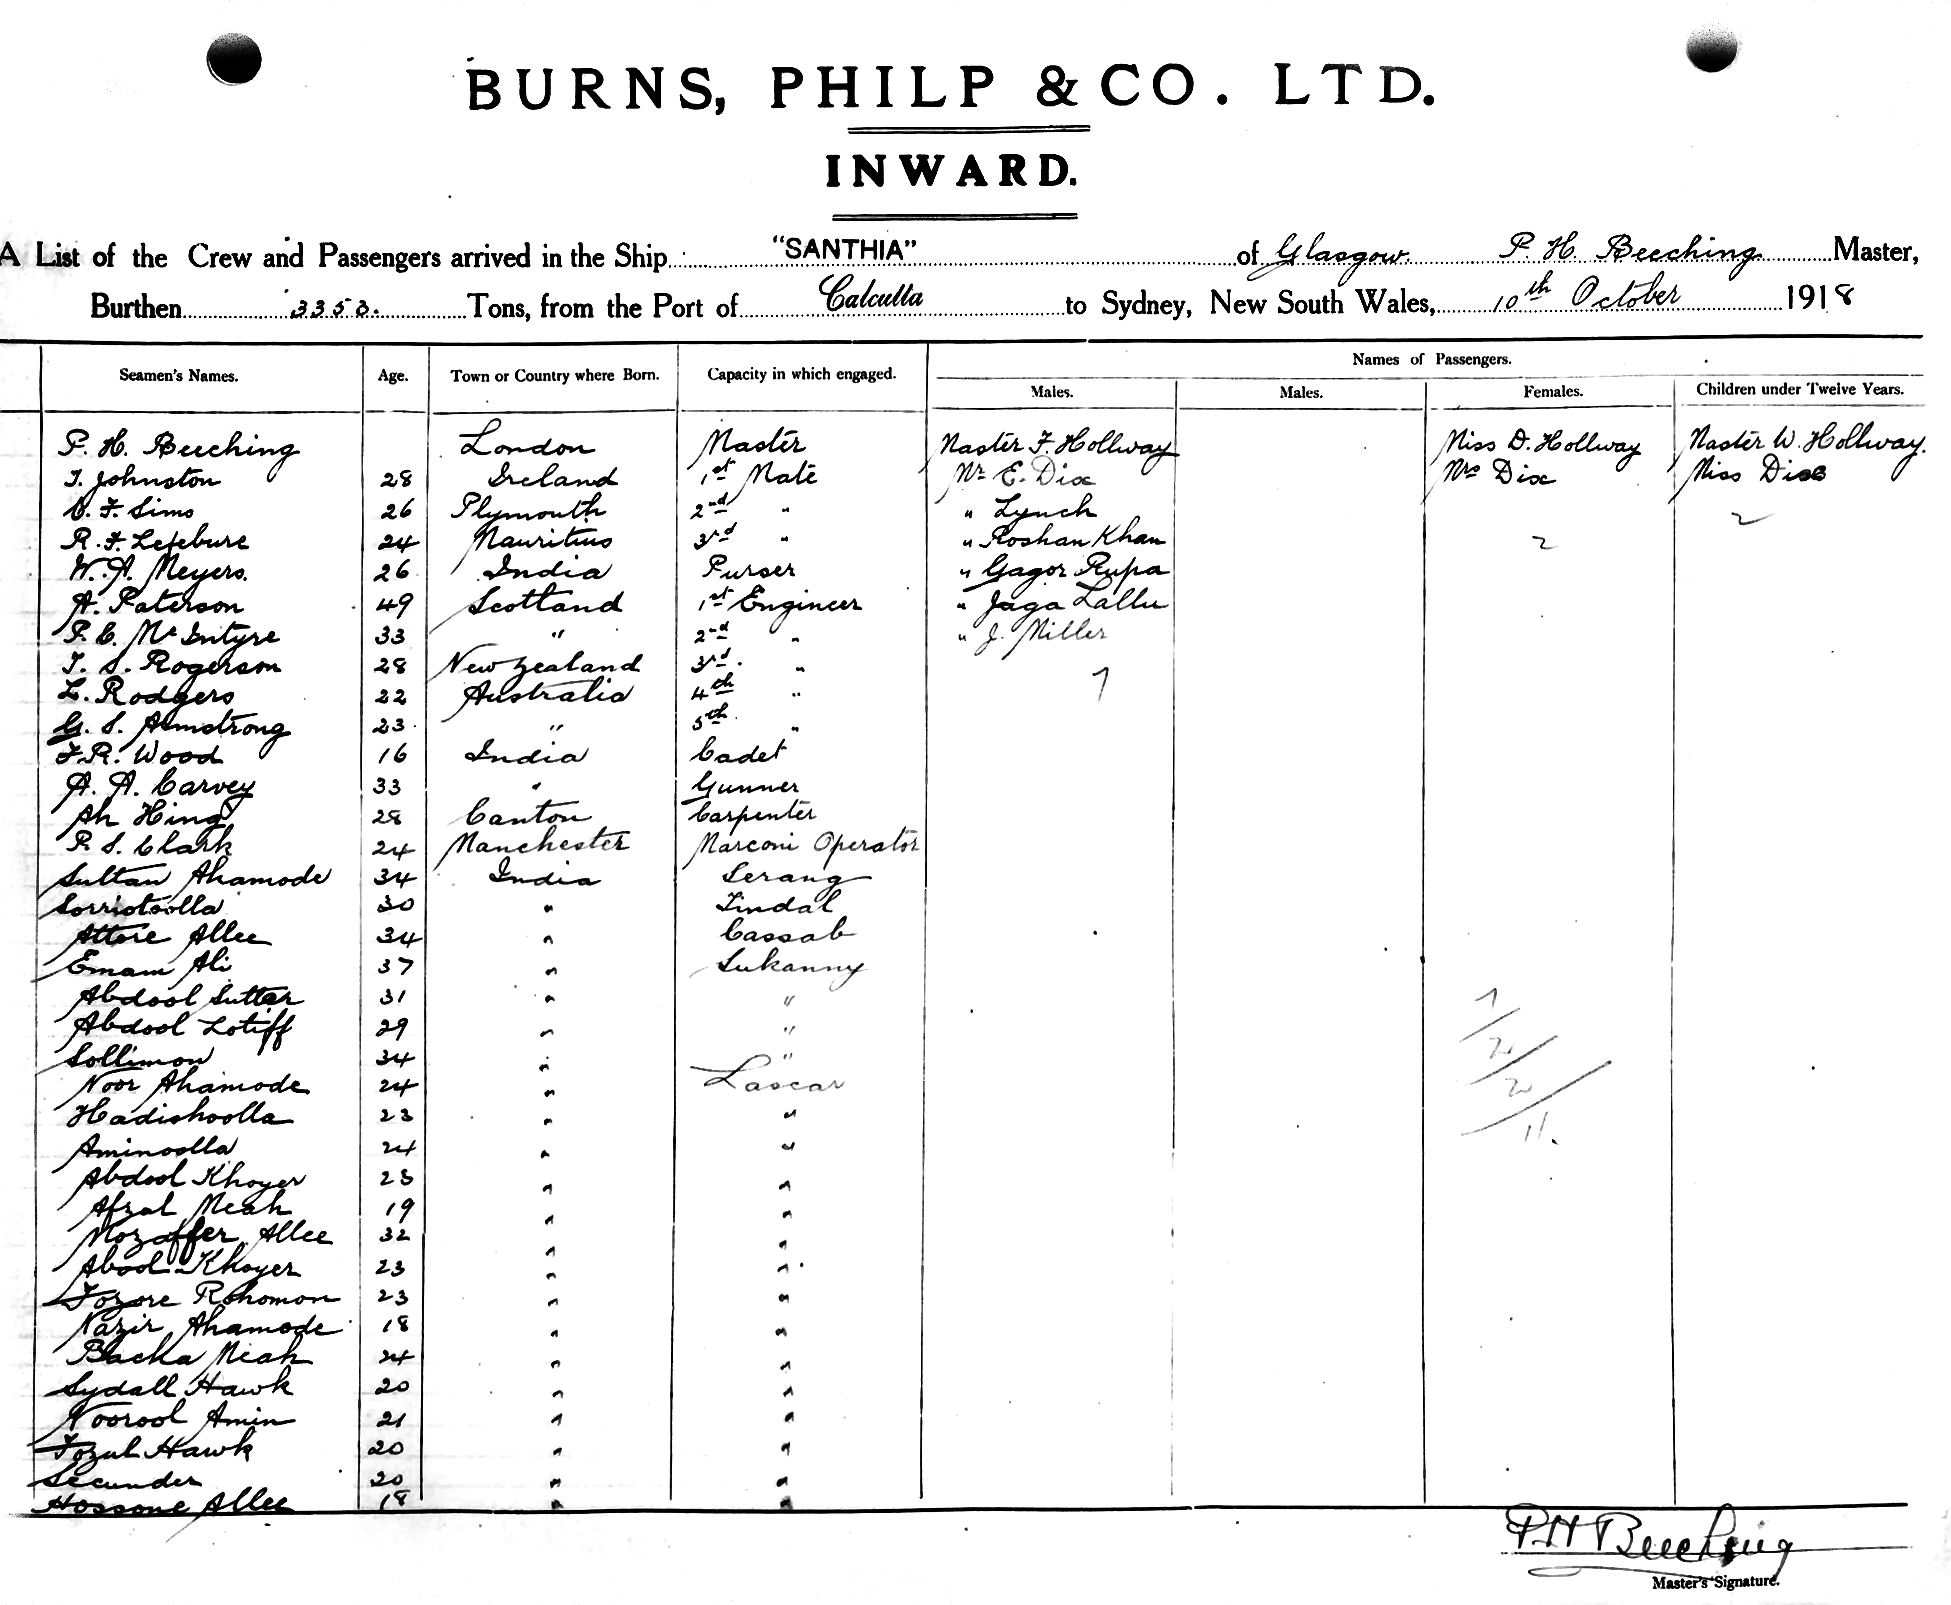 BURNS, PHILP & CO. LTD.
INWARD.
A List of the Crew and Passengers arrived in the Ship "SANTHIA" of Glasgow P. H. Beeching Master,
Burthen 3353. Tons, from the Port of Calcutta to Sydney, New South Wales, 10th October 1918
Names of Passengers.
Seamen's Names. Age. Town or Country where Born. Capacity in which engaged. Males. Males. Females. Children under Twelve Years.
P. H. Beeching London Master Master F. Hollway Miss D. Hollway Master W. Hollway.
T. Johnston 28 Ireland 1st Mate Mr E. Dix Mrs Dix Miss Dix
C. F. Sims 26 Plymouth 2nd " " Lynch 2
R. F. Lefebure 24 Mauritius 3rd " " Roshan Khan 2
W. A. Meyers. 26 India Purser " Gagor Rupa
A. Paterson 49 Scotland 1st Engineer " Jaga Lallu
P. C. McIntyre 33 " 2nd " " J. Miller
T. S. Rogerson 28 New Zealand 3rd. "
L. Rodgers 22 Australia 4th " 7
G. S. Armstrong 23 " 5th "
F. R. Wood 16 India Cadet
A. A. Carvey 33 " Gunner
Ah Hing 28 Canton Carpenter
P. S. Clark 24 Manchester Marconi Operator
Sultan Ahamode 34 India Serang
Sorriotoolla 30 " Tindal
Attore Allee 34 " Cassab
Emam Ali 37 " Sukanny
Abdool Suttar 31 " " 7/
Abdool Lotiff 29 " "
Sollimon 34 " " 2/
Noor Ahamode 24 " Lascar 2/
Hadishoolla 23 " "
Aminoolla 24 " " 11.
Abdool Khoyer 23 " "
Afzal Meah 19 " "
Mozaffer Allee 32 " "
Abool Khoyer 23 " "
Fozore Rohomon 23 " "
Nazir Ahamode 18 " "
Backa Meah 24 " "
Sydall Hawk 20 " "
Noorool Amin 21 " "
Fozul Hawk 20 " "
Secunder 20 " "
Hossone Allee 18 " "
P H Beeching
Master's Signature.